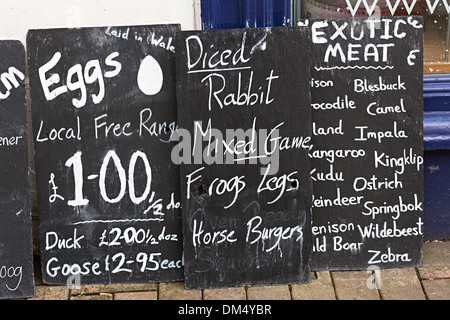 m
ener
00g
Laid in Wale
Eggs
Local Free Rang
£1-00 1/2 doz
Duck £2-00 1/2 doz
Goose 1/2-95 EACH
Diced
Rabbit
Mixed Game
Frogs Legs
Horse Burgers
EXOTIC
MEAT
ison Blesbuck
ocodile Camel
land Impala
angaroo Kingklip
udu Ostrich
eindeer Springbok
enison Wildebeest
ild Boar Zebra
alamy
DM4YBR